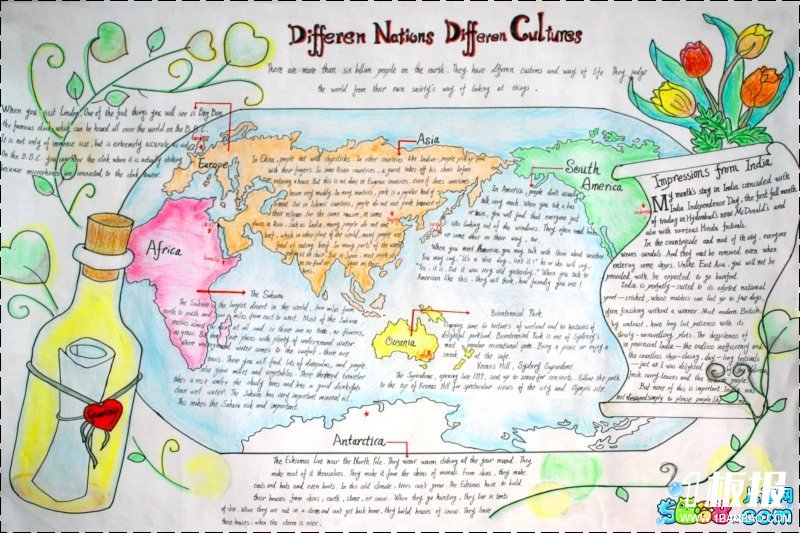 Differen Nations Differen Cultures
There are more than six billion people on the earth. They have differen customs and way of life. They judge
the world from their own saciely's way of looking at things.
When you visit London, One of the fast things you will see is Big Ben,
the famous clock which can be heard all over the world on the B.B.C.
It is not only of immense size, but is extremely accurate as well
On the B.B.C. you can hear the clock when it is actually striking
because microphones are connected to the clock tower.
Europe
Asia
In China, people eat with chopsticks. In other countries like Indian, people pick up food
with their fingers. In some Asian countries, a guest takes off his shoes before
entering a house. But this is not done in European countries, even if shoes sometimes
become very muddy. In many countries, pork is a popular kind of
meat. But in Islamic countries, people do not eat pork because of
their religion. For the same reason, in some
places in Asia, such as India, many people do not eat
beef, which in other places of the world, many people
fond of eating beef. In many parts of the world
South
America
In America, people don't usually
talk very much. When you take a bus
or train, you will find that everyone just
sits looking out of the windows. They often read books
or some other as their way, too.
When you meet Americans, you may talk with them about weather
You may say, "It's a nice day, isn't it?" he or she will say,
"Yes, it is. But it was very cold yesterday." When you talk to
American like this, they will think. How friendly you are!
Impressions from India
My month's stay in India coincided with
India Independence Day, the first full month
of trading in Hyderabad's new McDonald's and
also with numerous Hindu festivals.
In the countryside and most of the city, everyone
wears sandals. And they must be removed even when
entering some shops. Unlike East Asia, you will not be
provided with be expected to go barefoot.
India is perfectly-suited to its adopted national
sport-cricket, whose matches can last up to five days,
often finishing without a winner. Most modern British,
by contrast, have long lost patience with its
slowly-unravelling plots. The doggishness of
provincial India - the endless inefficiency and
the countless shop-closing, day-long festivals
- just as it was delighted
fresh curry-leaves and the people.
But none of this is important. India was
not designed simply to please people like
Africa
The Sahara
The Sahara is the largest desert in the world, two miles from
north to south, and miles from east to west. Most of the Sahara
receives almost no rain at all, and so there are no trees, no flowers,
no grass. But there are places with plenty of underground water.
Where underground water comes to the surface, there are
oases. There you will find lots of datepalms, and people
also grow millet and vegetables. Their sheltered traveler
takes a rest under the shady trees and has a good drink of its
clean well water. The Sahara has very important mineral oil.
This makes the Sahara rich and important.
Oceania
Bicentennial Park
Comprising some 60 hectares of wetland and 40 hectares of
delightful parkland, Bicentennial Park is one of Sydney's
most popular recreational spots. Bring a picnic or enjoy a
snack at the cafe.
Kronos Hill, Sydney Superdome
The Superdome, opening late 1999, seat up to 20000 for concerts. Follow the path
to the top of Kronos Hill for spectacular views of the city and Olympic site.
Antarctica
The Eskimoes live near the North Pole. They wear warm clothing all the year round. They
make most of it themselves. They make it from the skins of animals. From skins, they make
coats and hats and even boots. In this cold climate, trees can't grow. The Eskimos have to build
their houses from skins, earth, stone, or snow. When they go hunting, they live in tents
of skin. When they are out in a storm and can't get back home, they build houses of snow. They leave
these houses, when the storm is over.
板报网
WWW.1BANBAO.COM
.com